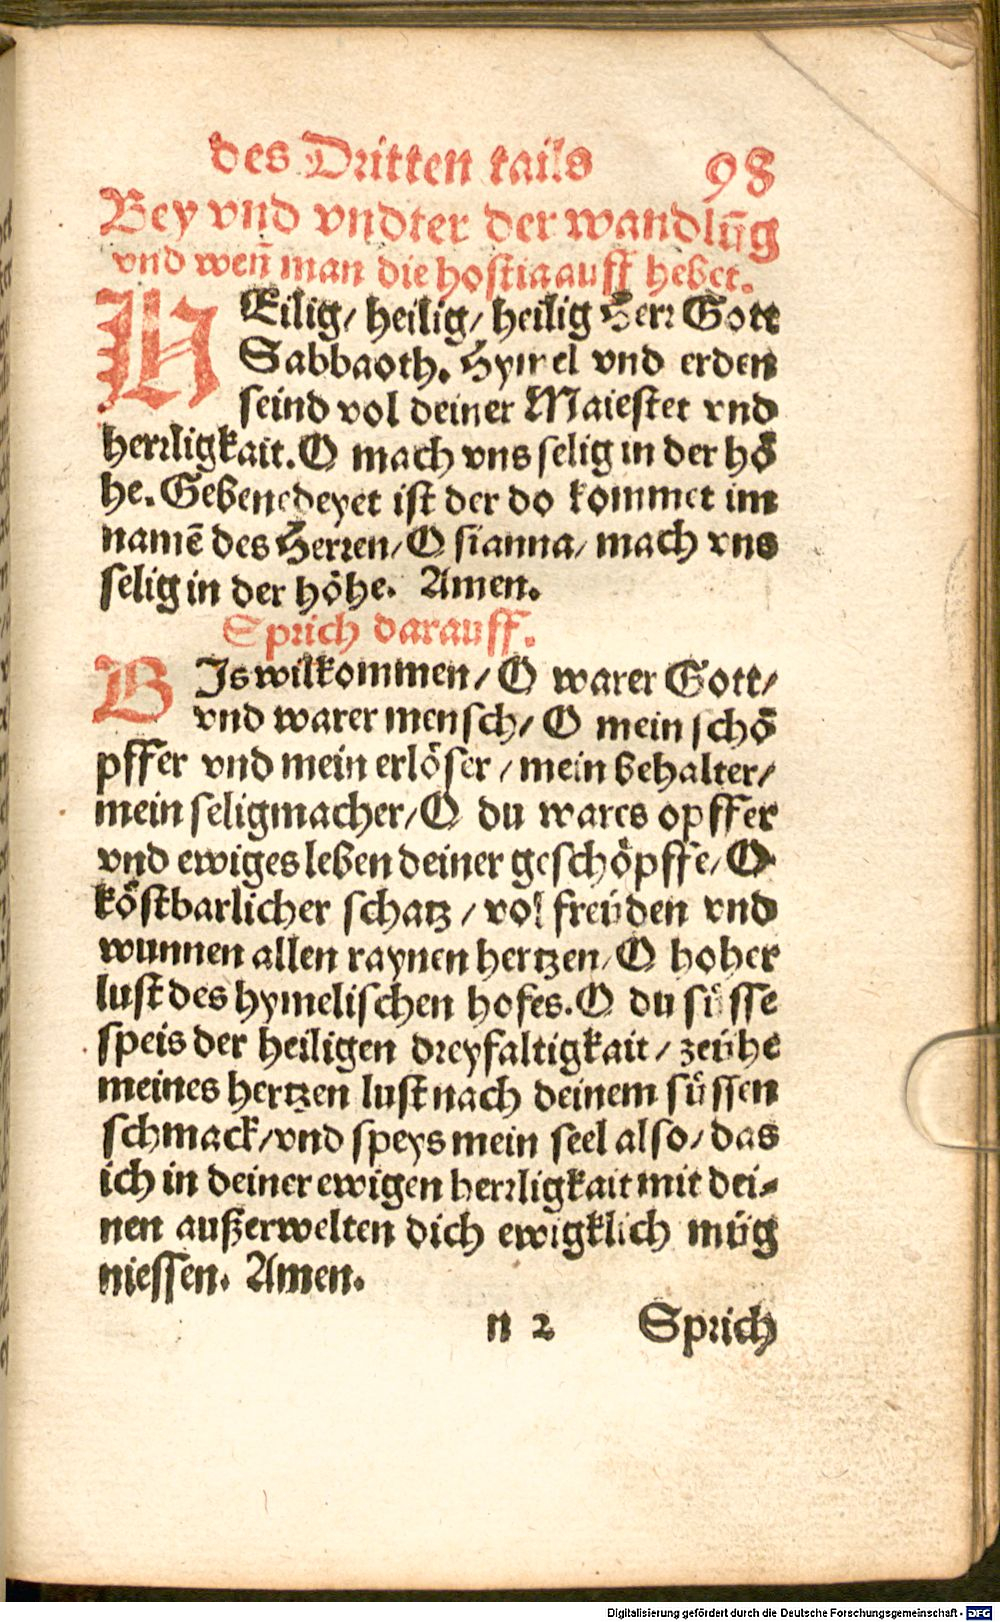 des Dritten tails 98
Bey vnd vndter der wandlūg
vnd weñ man die hostia auff hebet.
HEilig/ heilig/ heilig Herr Gott
Sabbaoth. Hymel vnd erden
seind vol deiner Maiestet vnd
herrligkait. O mach vns selig in der hö
he. Gebenedeyet ist der do kommet im
namē des Herren/ O sianna/ mach vns
selig in der höhe. Amen.
Sprich darauff.
BIs wilkommen/ O warer Gott/
vnd warer mensch/ O mein schö
pffer vnd mein erlöser/ mein behalter/
mein seligmacher/ O du wares opffer
vnd ewiges leben deiner geschöpffe/ O
köstbarlicher schatz/ vol freüden vnd
wunnen allen raynen hertzen/ O hoher
lust des hymelischen hofes. O du süsse
speis der heiligen dreyfaltigkait/ zeühe
meines hertzen lust nach deinem süssen
schmack/ vnd speys mein seel also/ das
ich in deiner ewigen herrligkait mit dei-
nen außerwelten dich ewigklich müg
niessen. Amen.
n 2 Sprich
Digitalisierung gefördert durch die Deutsche Forschungsgemeinschaft - DFG